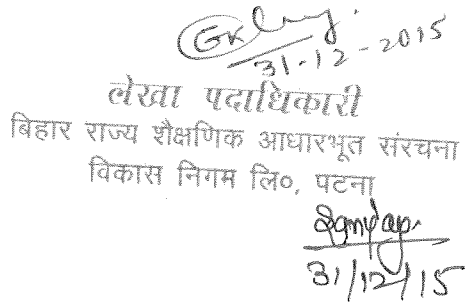 31-12-2015
लेखा पदाधिकारी
बिहार राज्य शैक्षणिक आधारभूत संरचना
विकास निगम लि०, पटना
31/12/15